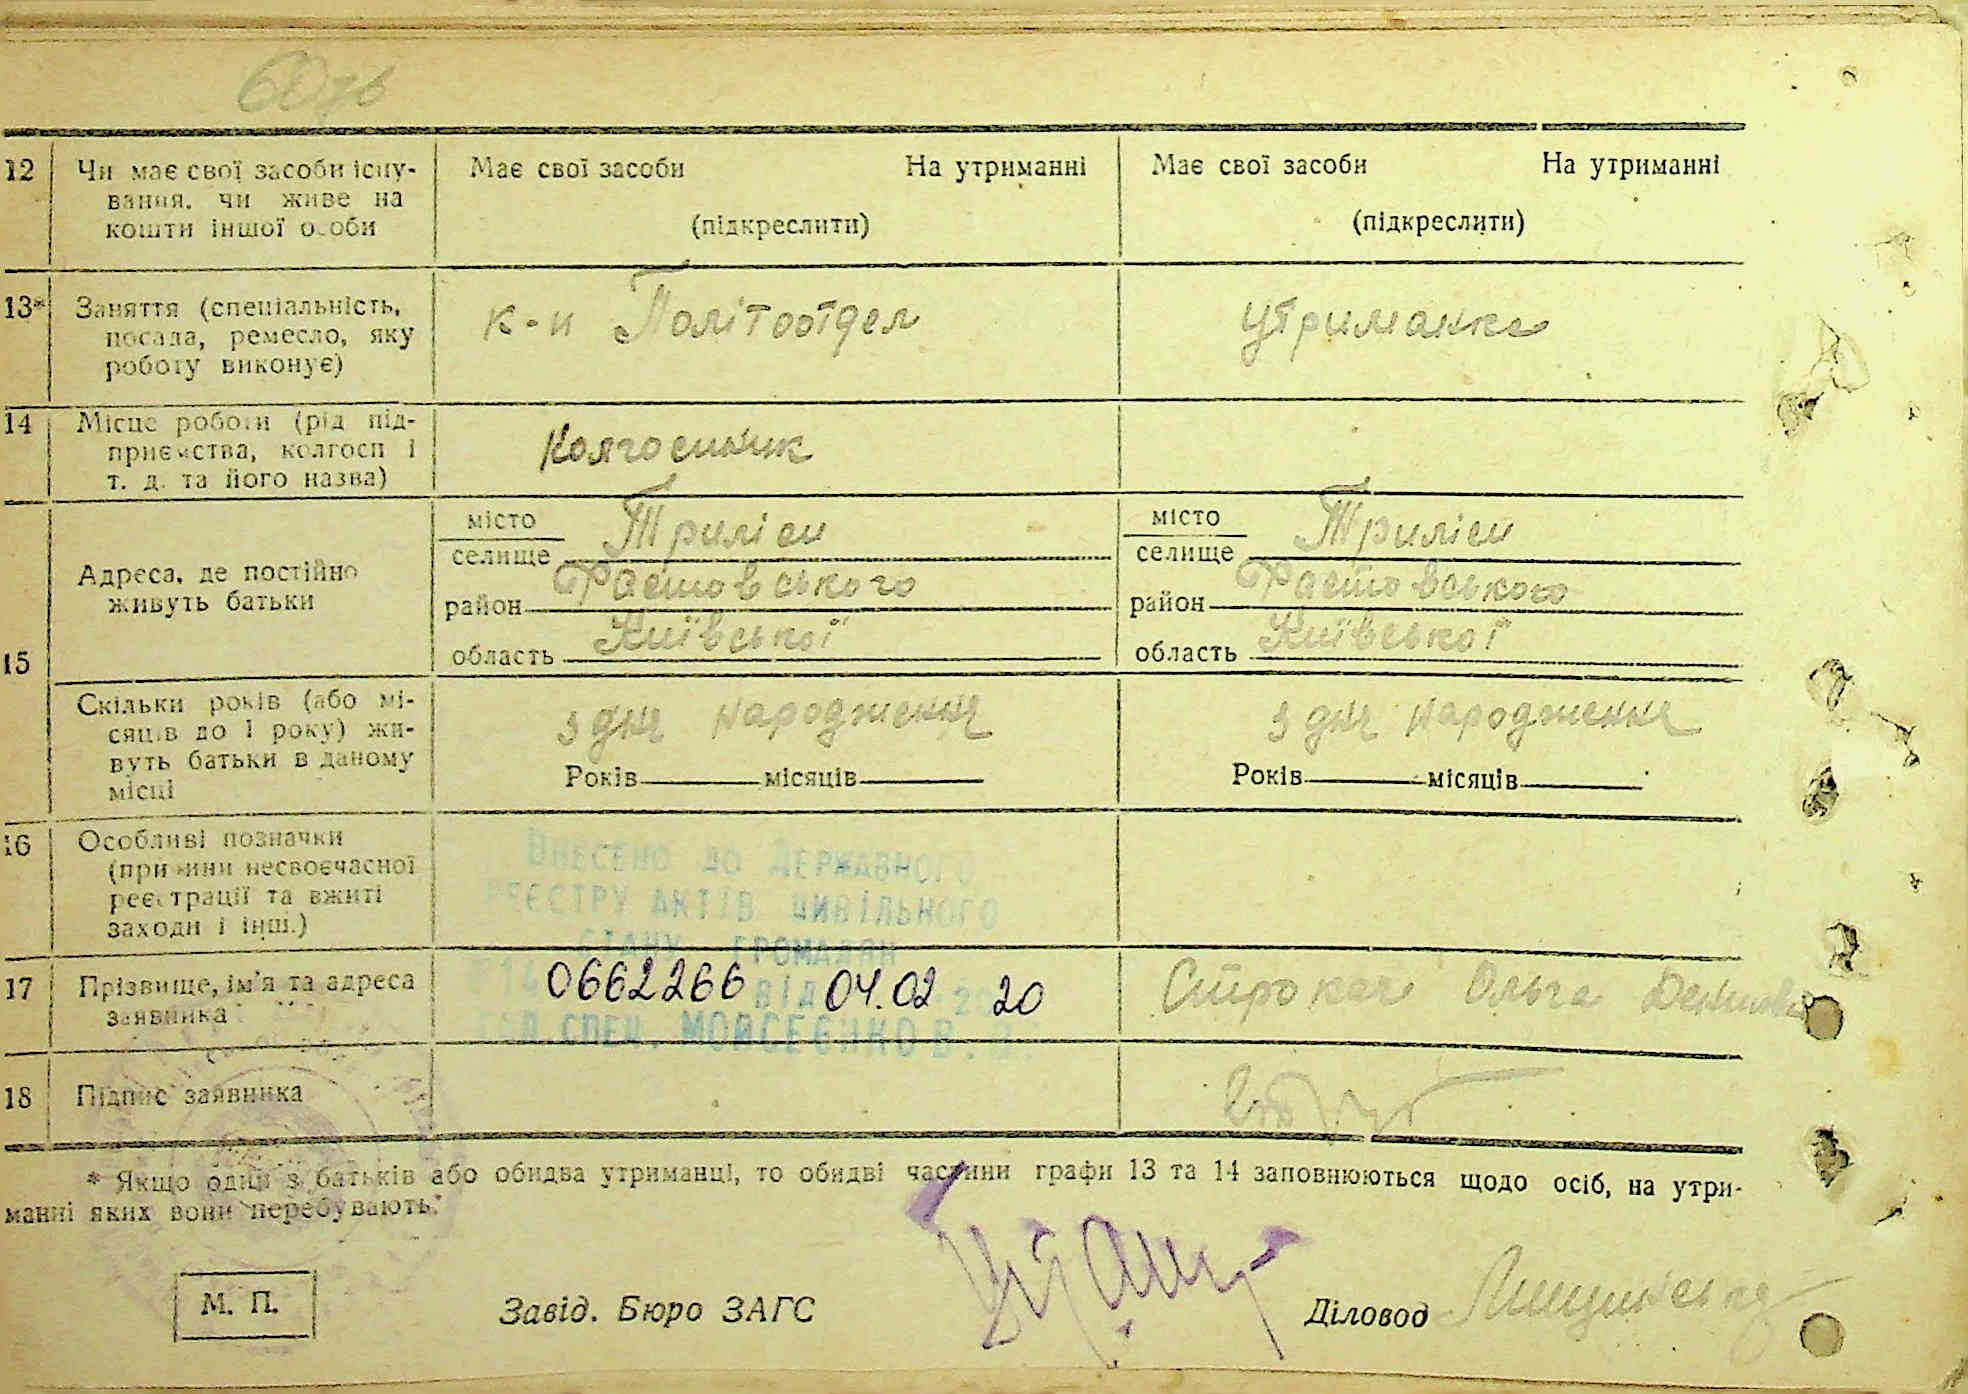 60зв
12 Чи має свої засоби існу- Має свої засоби На утриманні Має свої засоби На утриманні
вання, чи живе на
кошти іншої особи (підкреслити) (підкреслити)
13* Заняття (спеціальність, к-и Політоотдел утриманка
посада, ремесло, яку
роботу виконує)
14 Місце роботи (рід під- Колгоспник
приємства, колгосп і
т. д. та його назва)
місто Триліси місто Триліси
селище селище
15 Адреса, де постійно район Фастовського район Фастовського
живуть батьки
область Київської область Київської
Скільки років (або мі- з дня народження з дня народження
сяців до 1 року) жи-
вуть батьки в даному Років місяців Років місяців
місці
16 Особливі позначки
(причини несвоєчасної
реєстрації та вжиті
заходи і інш.)
ВНЕСЕНО ДО ДЕРЖАВНОГО
РЕЄСТРУ АКТІВ ЦИВІЛЬНОГО
СТАНУ ГРОМАДЯН
17 Прізвище, ім'я та адреса 0662266 ВІД 04.02 20 Строкач Ольга
заявника
СПЕЦ. МОЙСЕЄНКО В.
18 Підпис заявника
* Якщо один з батьків або обидва утриманці, то обидві частини графи 13 та 14 заповнюються щодо осіб, на утри-
манні яких вони перебувають.
М. П. Завід. Бюро ЗАГС Діловод